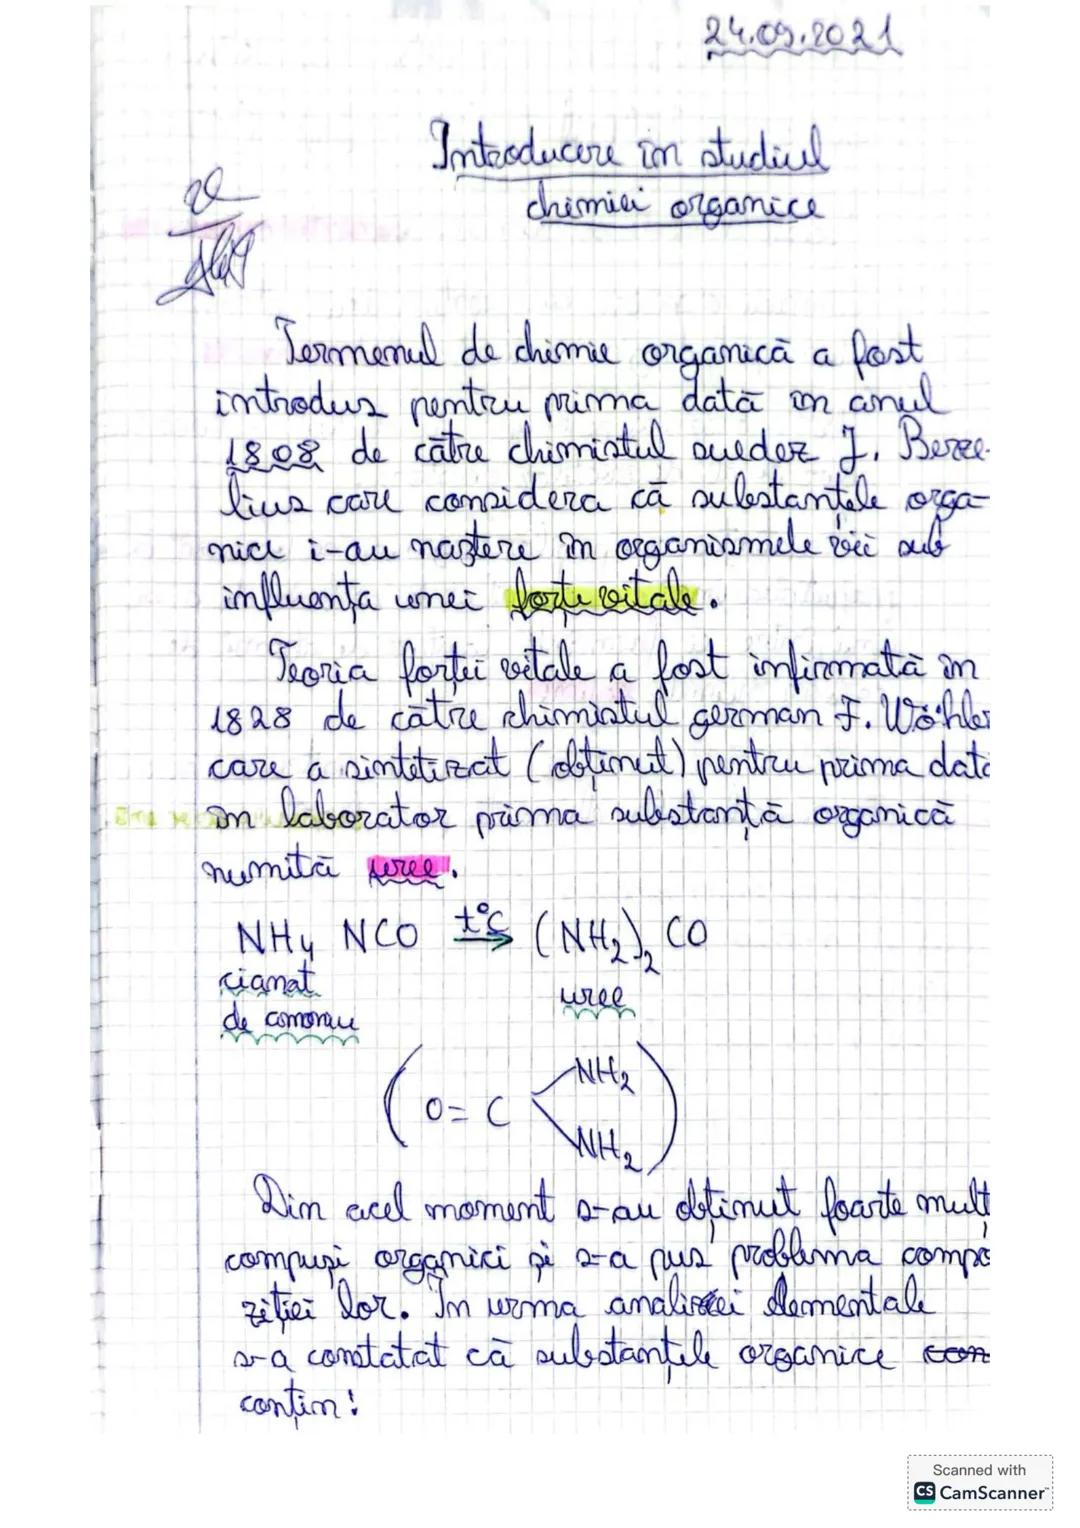 24.09.2021
Introducere în studiul
chimiei organice
Termenul de chimie organică a fost
introdus pentru prima dată în anul
1808 de către chimistul suedez J. Berze-
lius care considera că substanțele orga-
nice i-au naștere în organismele vii sub
influența unei forțe vitale.
Teoria forței vitale a fost infirmată în
1828 de către chimistul german F. Wöhler
care a sintetizat (obținut) pentru prima dată
în laborator prima substanță organică
numită uree.
NH₄ NCO t°C → (NH₂)₂ CO
cianat uree
de amoniu
NH₂
(O= C )
NH₂
Din acel moment s-au obținut foarte mult
compuși organici și s-a pus problema compo
ziției lor. În urma analizei elementale
s-a constatat că substanțele organice con
conțin:
Scanned with
CS CamScanner